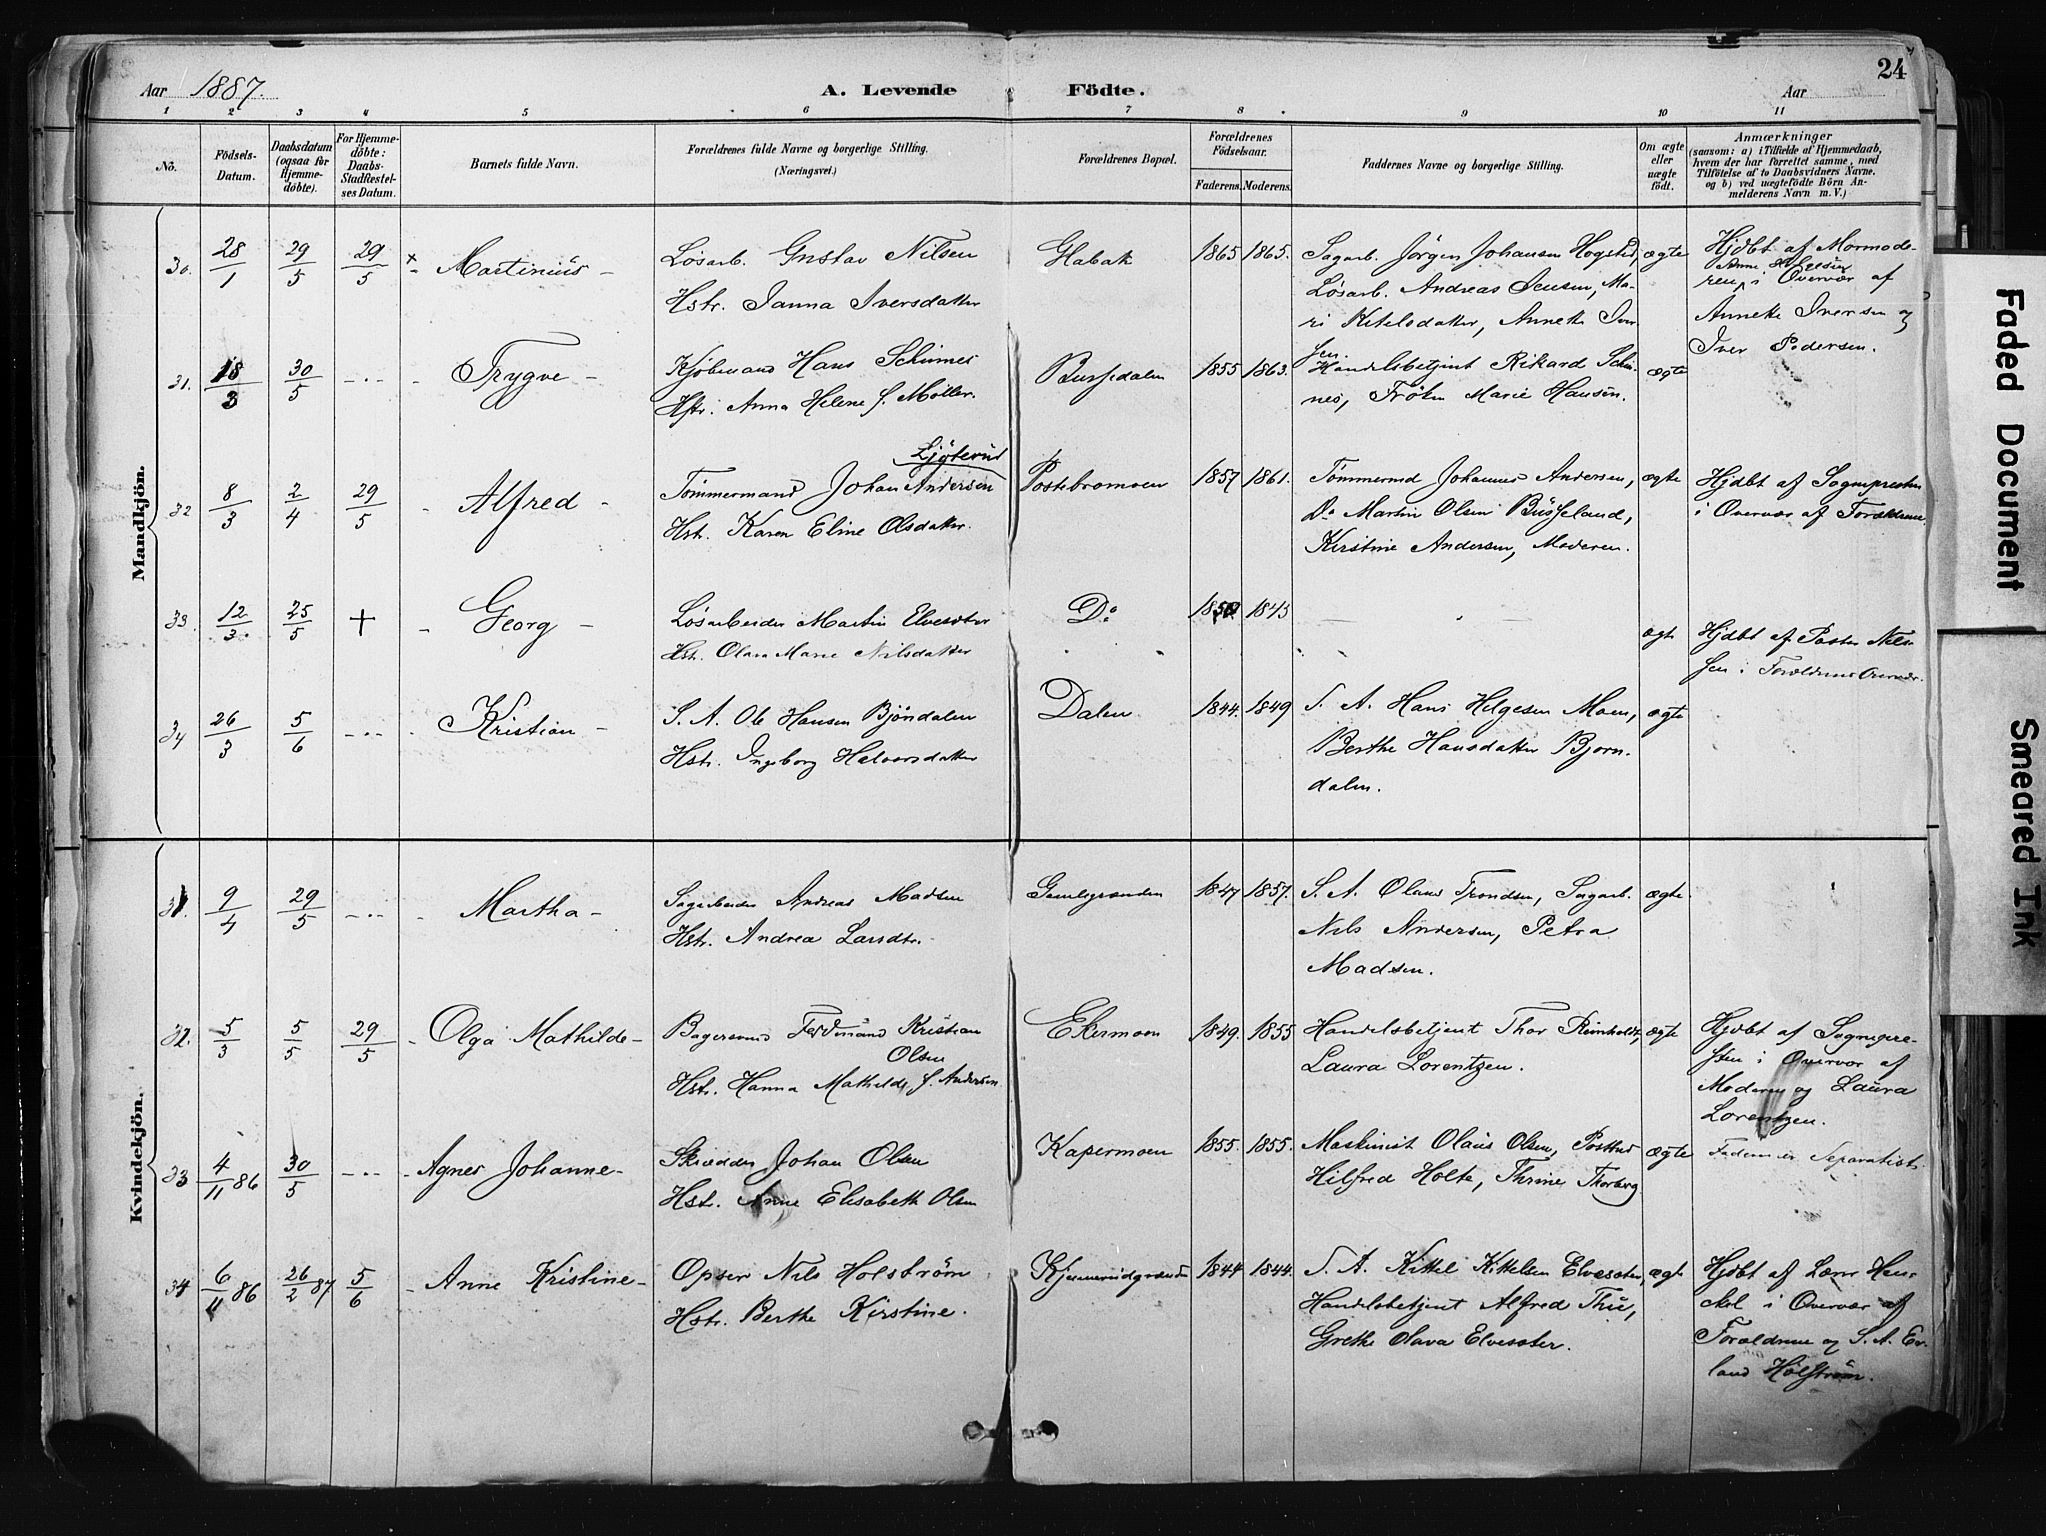 Aar 1887. A. Levende Födte. Aar 24
1 2 3 4 5 6 7 8 9 10 11
No. Födsels-Datum. Daabsdatum (ogsaa for Hjemme-döbte). For Hjemme-döbte: Daabs-Stadfæstel-ses Datum. Barnets fulde Navn. Forældrenes fulde Navne og borgerlige Stilling. (Næringsvei.) Forældrenes Bopæl. Forældrenes Födselsaar. Faderens. Moderens. Faddernes Navne og borgerlige Stilling. Om ægte eller uægte födt. Anmærkninger (saasom: a) i Tilfælde af Hjemmedaab, hvem der har forrettet samme, med Tilföielse af to Daabsvidners Navne. og b) ved uægtefödte Börn An-melderens Navn m.V.)
Mandkjön.
30. 28/1 29/5 29/5 x Martinius - Løsarb. Gustav Nilsen Glabak 1865 1865. Sagarb. Jörgen Johansen Hogstad, ægte Hjdbt af Mormode-
Hstr. Janna Iversdatter Løsarb. Andreas Jensen, Ma- ren, i Overvær af
ri Ketelsdatter, Annette Iver Annette Iversen og
sen. Iver Pedersen.
31. 18/3 30/5 -..- Trygve - Kjöbmand Hans Schirnes Bussedalen 1855 1863. Handelsbetjent Rikard Schir- ægte
Hstr. Anna Helene f. Möller. nes, Fröken Marie Hansen.
Ljöterud
32 8/3 2/4 29/5 - Alfred - Tömmermand Johan Andersen Postebromoen 1857 1861. Tömmermd Johannes Andersen, ægte Hjdbt af Sognepresten
Hstr. Karen Eline Olsdatter. Do Martin Olsen Büsseland, i Overvær af Forældrene
Kirstine Andersen, Moderen.
33. 12/3 25/5 + - Georg - Løsarbeider Martin Elvesæter Do 1850 1843 ægte Hjdbt af Pastor Niel-
Hstr. Olava Marie Nilsdatter sen i Forældrenes Overvær.
34 26/3 5/6 -..- Kristian - S. A. Ole Hansen Bjöndalen Dalen 1844. 1849 S. A. Hans Helgesen Moen, ægte
Hstr. Ingeborg Halvorsdatter Berthe Hansdatter Bjorn-
dalen.
Kvindekjön.
31. 9/4 29/5 -..- Martha - Sagarbeider Andreas Madsen Gamlegrænden 1847 1857. S. A. Olaus Trondsen, Sagarb. ægte.
Hstr. Andrea Larsdtr. Nils Andersen, Petra
Madsen.
32. 5/3 5/5 29/5 - Olga Mathilde - Bagersvend Ferdinand Kristian Ekermoen 1849. 1855 Handelsbetjent Thor Reinholdt, ægte Hjdbt af Sognepre-
Olsen Laura Lorentzen. sten i Overvær af
Hstr. Hanna Mathilde f. Andersen Moderen og Laura
Lorentzen.
33 4/11 86 30/5 -..- Agnes Johanne - Skrædder Johan Olsen Kapermoen 1855. 1855. Maskinist Olaus Olsen, Postbud ægte Faderen er Separatist.
Hstr. Anne Elisabeth Olsen Hilfred Holte, Thrine Thorberg
34 6/11 86 26/2 87 5/6 - Anne Kristine - Opser Nils Holström Kjennerudgrænden 1844 1844. S. A. Kittel Kittelsen Elvesæter, ægte Hjdbt af Lærer Hen-
Hstr. Berthe Kirstine. Handelsbetjent Alfred Thu, ckel i Overvær af
Grethe Olava Elvesæter. Forældrene og S. A. Er-
land Hölström.
Faded Document
Smeared Ink